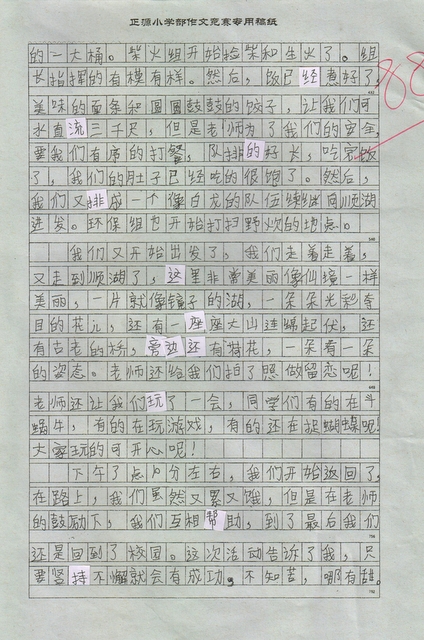 正源小学部作文竞赛专用稿纸
的一大桶。柴火组开始捡柴和生火了。组
长指挥的有模有样。然后，饭已经煮好了，
美味的面条和圆圆鼓鼓的饺子，让我们口
水直流三千尺，但是老师为了我们的安全，
要我们有序的打餐，队排的好长，吃完饭
了，我们的肚子已经吃的很饱了。然后，
我们又排成一个像白龙的队伍继续向顺湖
进发。环保组也开始打扫野炊的地点。
我们又开始出发了，我们走着走着，
又走到顺湖了，这里非常美丽像仙境一样
美丽，一片就像镜子的湖，一朵朵光彩夺
目的花儿，还有一座座大山连绵起伏，还
有古老的桥，旁边还有荷花，一朵有一朵
的姿态。老师还给我们拍了照做留恋呢！
老师还让我们玩了一会，同学们有的在斗
蜗牛，有的在玩游戏，有的还在捉蝴蝶呢！
大家玩的可开心呢！
下午了点分左右，我们开始返回了，
在路上，我们虽然又累又饿，但是在老师
的鼓励下，我们互相帮助，到了最后我们
还是回到了校园。这次活动告诉了我，只
要坚持不懈就会有成功。不知苦，哪有甜。
88